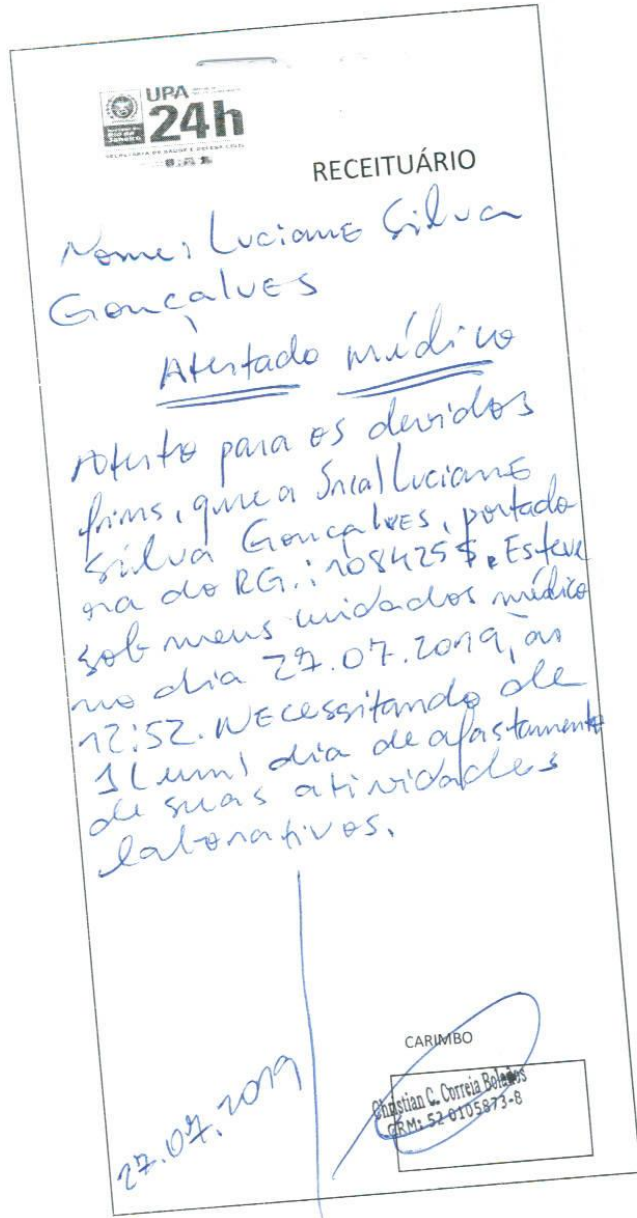 UPA
24h
SECRETARIA DE SAÚDE E DEFESA CIVIL
RECEITUÁRIO
Nome: Luciane Silva
Gonçalves
Atestado médico
Atesto para os devidos
fins, que a Sra(Luciane
Silva Gonçalves, portado
ra do RG.: 108425 Esteve
sob meus cuidados médico
no dia 27.07.2019, às
12:52. Necessitando de
1 (um) dia de afastamento
de suas atividades
laborativos.
27.07.2019
CARIMBO
Christian C. Correia Bolaños
CRM: 52 0105873-8